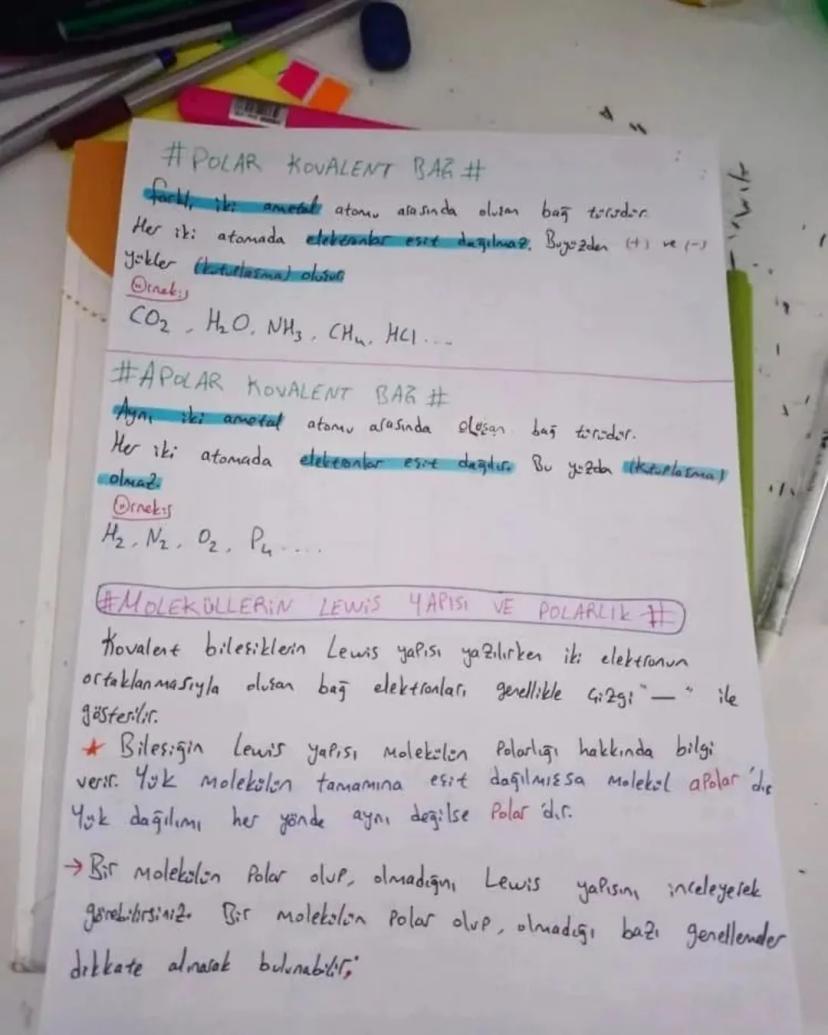 #POLAR KOVALENT BAĞ#
farklı iki ametal atomu arasında oluşan bağ türüdür.
Her iki atomada elektronlar eşit dağılmaz. Bu yüzden (+) ve (-)
yükler (kutuplaşma) oluşur
Örnek;
CO₂, H₂O, NH₃, CH₄, HCl ....
#APOLAR KOVALENT BAĞ#
Aynı iki ametal atomu arasında oluşan bağ türüdür.
Her iki atomada elektronlar eşit dağılır. Bu yüzden (kutuplaşma)
olmaz.
Örnek;
H₂, N₂, O₂, P₄ ....
#MOLEKÜLLERİN LEWİS YAPISI VE POLARLIK#
Kovalent bileşiklerin Lewis yapısı yazılırken iki elektronun
ortaklanmasıyla oluşan bağ elektronları genellikle çizgi "—" ile
gösterilir.
★ Bileşiğin Lewis yapısı molekülün Polarlığı hakkında bilgi
verir. Yük molekülün tamamına eşit dağılmışsa molekül apolar'dır
Yük dağılımı her yönde aynı değilse Polar'dır.
→ Bir molekülün Polar olup, olmadığını Lewis yapısını inceleyerek
görebilirsiniz. Bir molekülün Polar olup, olmadığı bazı genellemeler
dikkate alınarak bulunabilir;